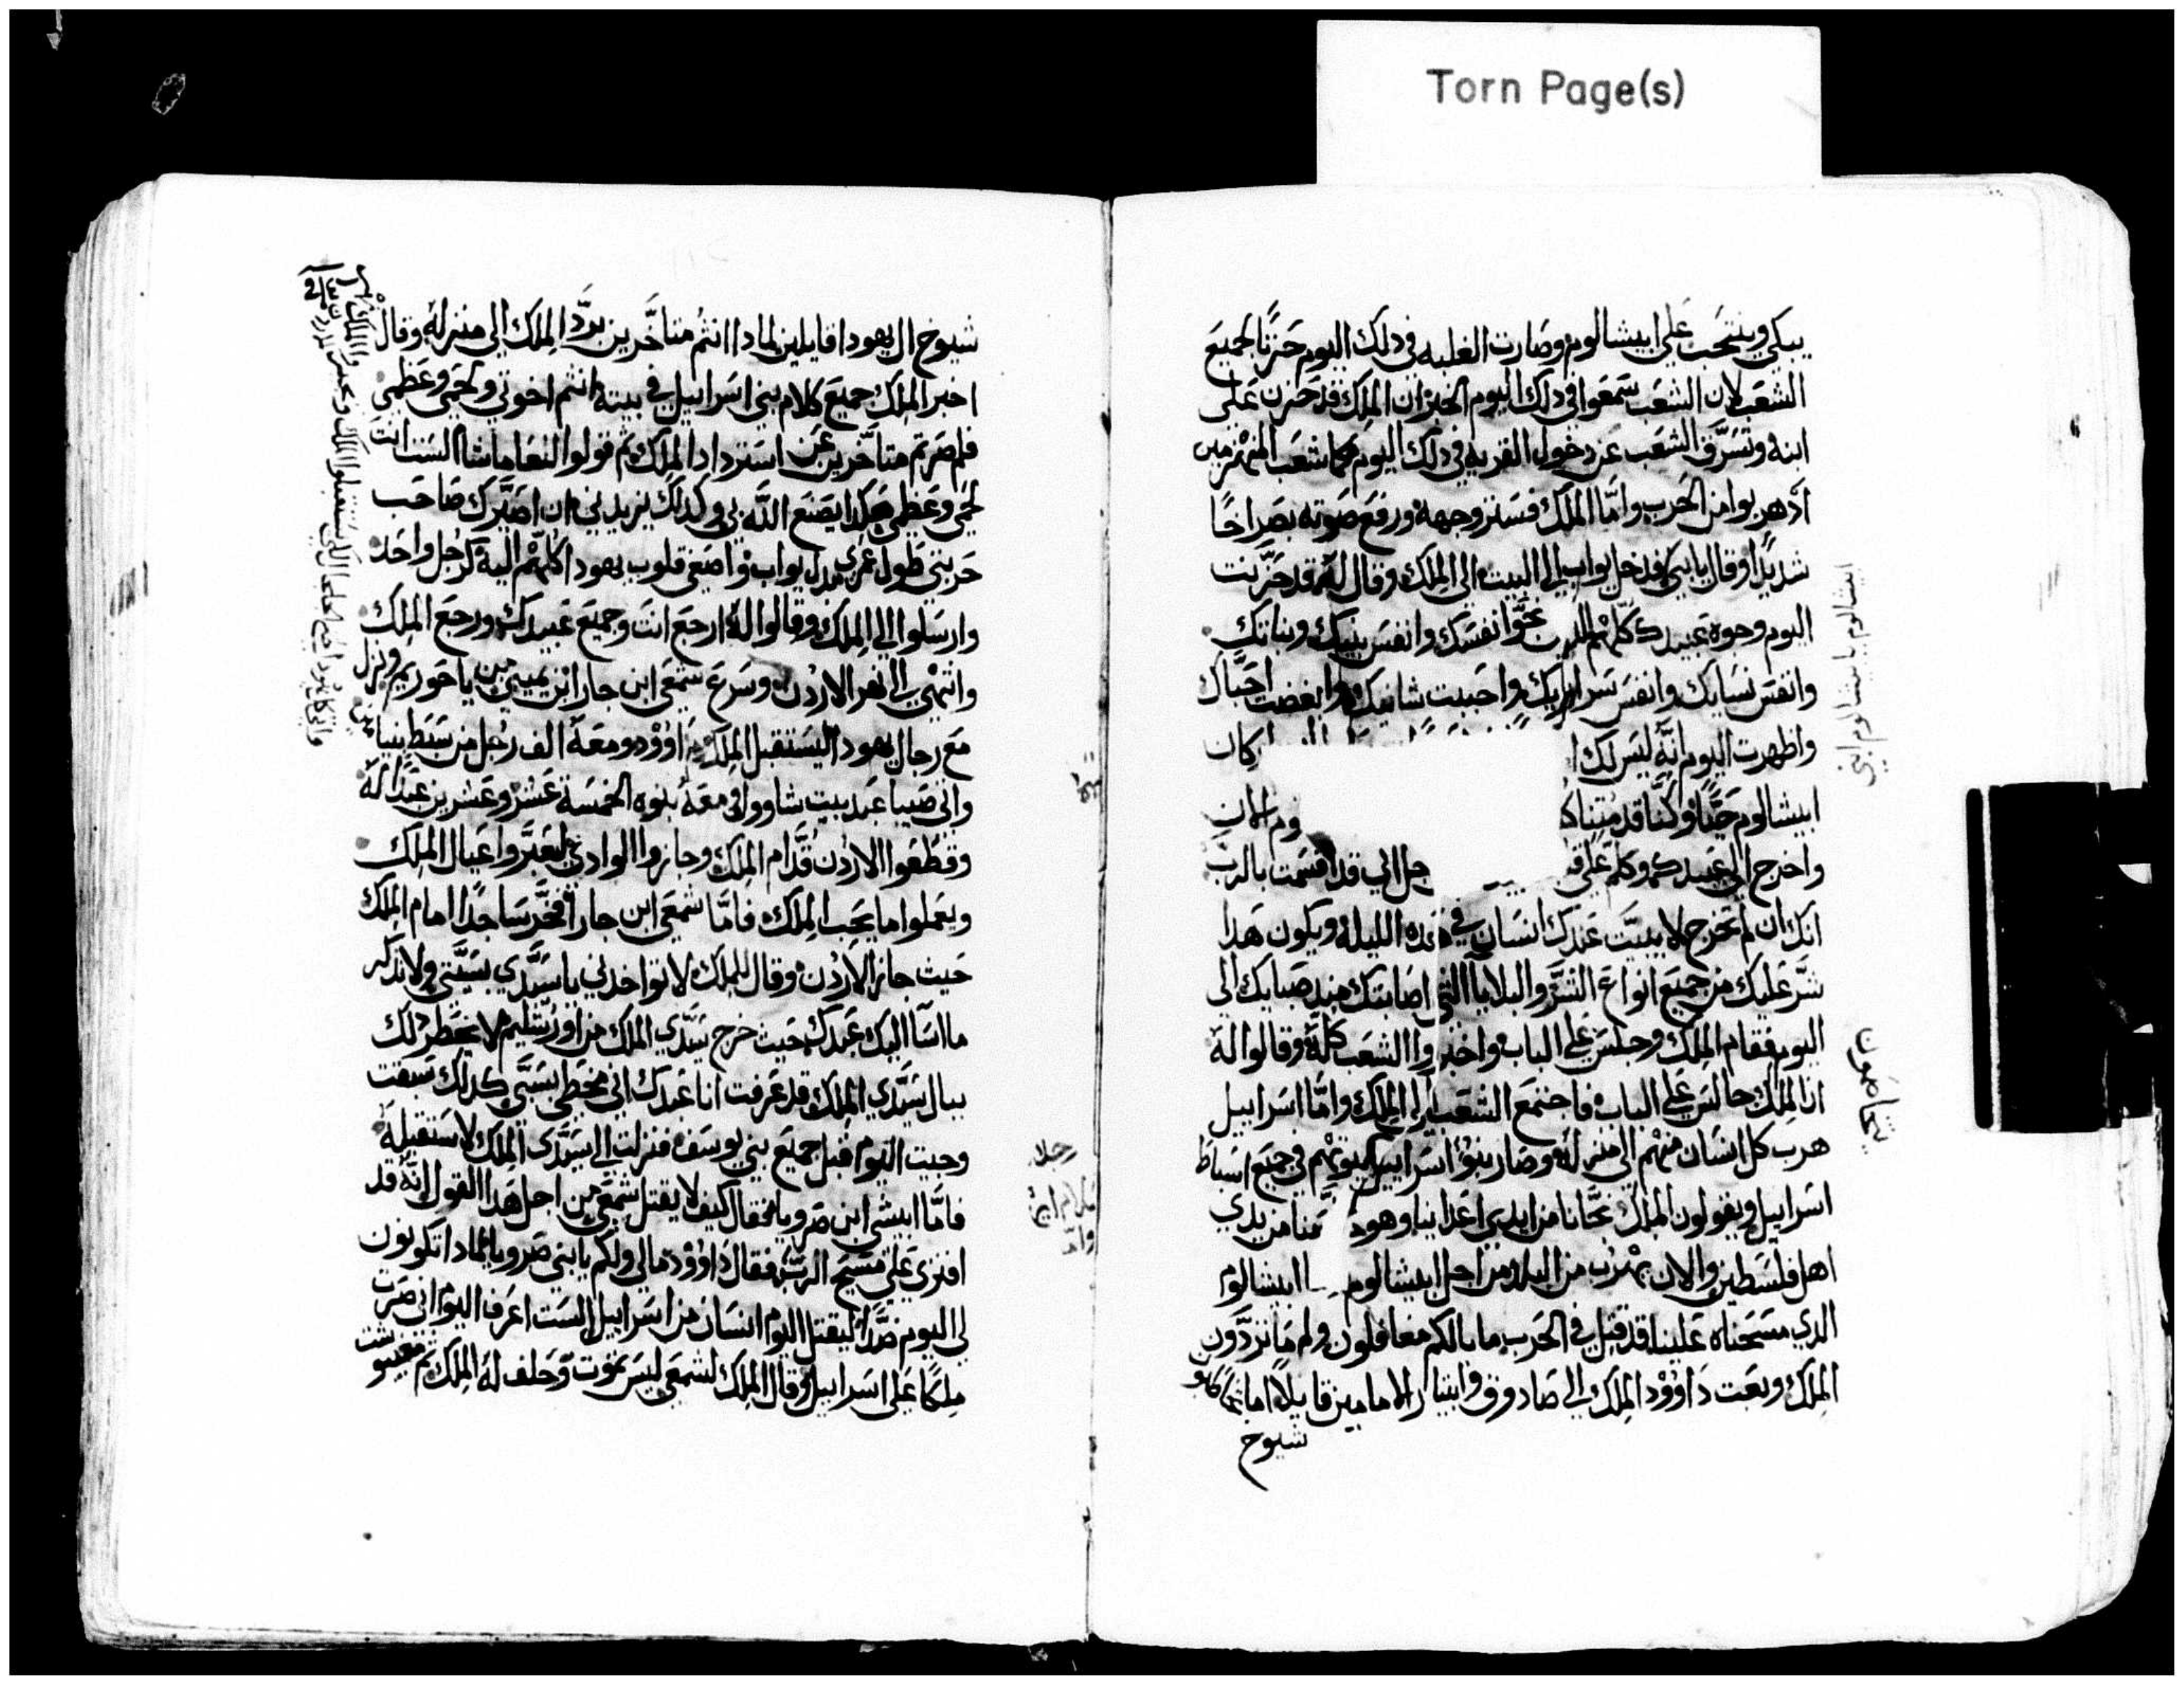 Torn Page(s)
يبكي وينتحب علي ابيشالوم وصارت الغلبه في دلك اليوم حزنًا لجميع
الشعب لان الشعب سمعوا في دلك اليوم الخبر ان الملك قد حزن على
ابنه وتسرق الشعب عن دخول القريه في دلك اليوم كما شعب المنهزمين
اد هربوا من الحرب واما الملك فستر وجهه ورفع صوته بصراخًا
شديدًا وقال يا بني فدخل يواب الي البيت الي الملك وقال له قد حزنت
اليوم وجوه عبيدك كلهم الدين نجوا نفسك وانفس بنيك وبناتك
وانفس نسايك وانفس سراريك واحببت شانيك وابغضت احباك
واظهرت اليوم انه ليس لك كان
ابيشالوم حيًا وكنا قد متنا
واخرج الي عبيدك وكلم علي جل اني قد اقسمت بالرب
انك ان لم تخرج لا يبيت عندك انسان في هده الليله ويكون هدا
شر عليك من جميع انواع الشر والبلايا التي اصابتك مند صبايك الي
اليوم فقام الملك وجلس علي الباب واخبروا الشعب كله وقالوا له
ان الملك جالس علي الباب فاجتمع الشعب الي الملك واما اسراييل
هرب كل انسان منهم الي منزله وصار بنوا اسراييل في جميع اسباط
اسراييل ويقولون الملك نجانا من ايدي اعداينا وهو منا من يدي
اهل فلسطين والان يهرب من البلد من اجل ابيشالوم ابيشالوم
الدي مسحناه علينا قد قتل في الحرب ما بالكم متغافلون ولم ما تردون
الملك وبعت داوود الملك الي صادوق وابيتار الامامين قايلًا
شيوخ
شيوخ ال يهودا قايلين لمادا انتم متاخرين برد الملك الي منزله وقال
اخبر الملك جميع كلام بني اسراييل في بيته انتم اخوتي ولحمي وعظمي
فلم صرتم متاخرين عن استرداد الملك ثم قولوا لنعاماشا الست انت
لحمي وعظمي هكدا يصنع الله بي وكدلك يزيدني ان اصيرك صاحب
حربتي طول عمري بدل يواب واصغي قلوب يهودا كلهم اليه كرجل واحد
وارسلوا الي الملك وقالوا له ارجع انت وجميع عبيدك ورجع الملك
وانتهى الي نهر الاردن وسرع شمعي ابن جارا ابن يميني من ياحوريم ونزل
مع رجال يهودا ليستقبل الملك داوود ومعه الف رجل من سبط بنيامين
واني صيبا عبد بيت شاوول في معه بنوه الخمسة عشر وعشرين عبد له
وقطعوا الاردن قدام الملك وجازوا الوادي ليعبروا عيال الملك
ويعملوا ما يحب الملك فاما شمعي ابن جارا فخر ساجدًا امام الملك
حيث جاز الاردن وقال للملك لا تواخدني يا سيدي بسيتي ولا تدكر
ما اسا اليك عبدك حيث خرج سيدي الملك من اورشليم لا يخطر دلك
ببال سيدي الملك قد عرفت انا عبدك اني مخطي كدلك سبقت
وجيت اليوم قبل جميع بني يوسف فنزلت الي سيدي الملك لاستقبله
فاما ابيشي ابن صرويا فقال كيف لا يقتل شمعي من اجل هدا القول انه قد
افتري علي مسيح الرب فقال داوود مالي ولكم يا بني صرويا لمادا تكونون
لي اليوم ضدًا ليقتل اليوم انسان من اسراييل الست اعرف اليوم اني صرت
ملكًا علي اسراييل وقال الملك لشمعي ليس تموت وحلف له الملك ثم مفيبوشت
ابيشالوم يا ابيشالوم ابني
يتخاصمون